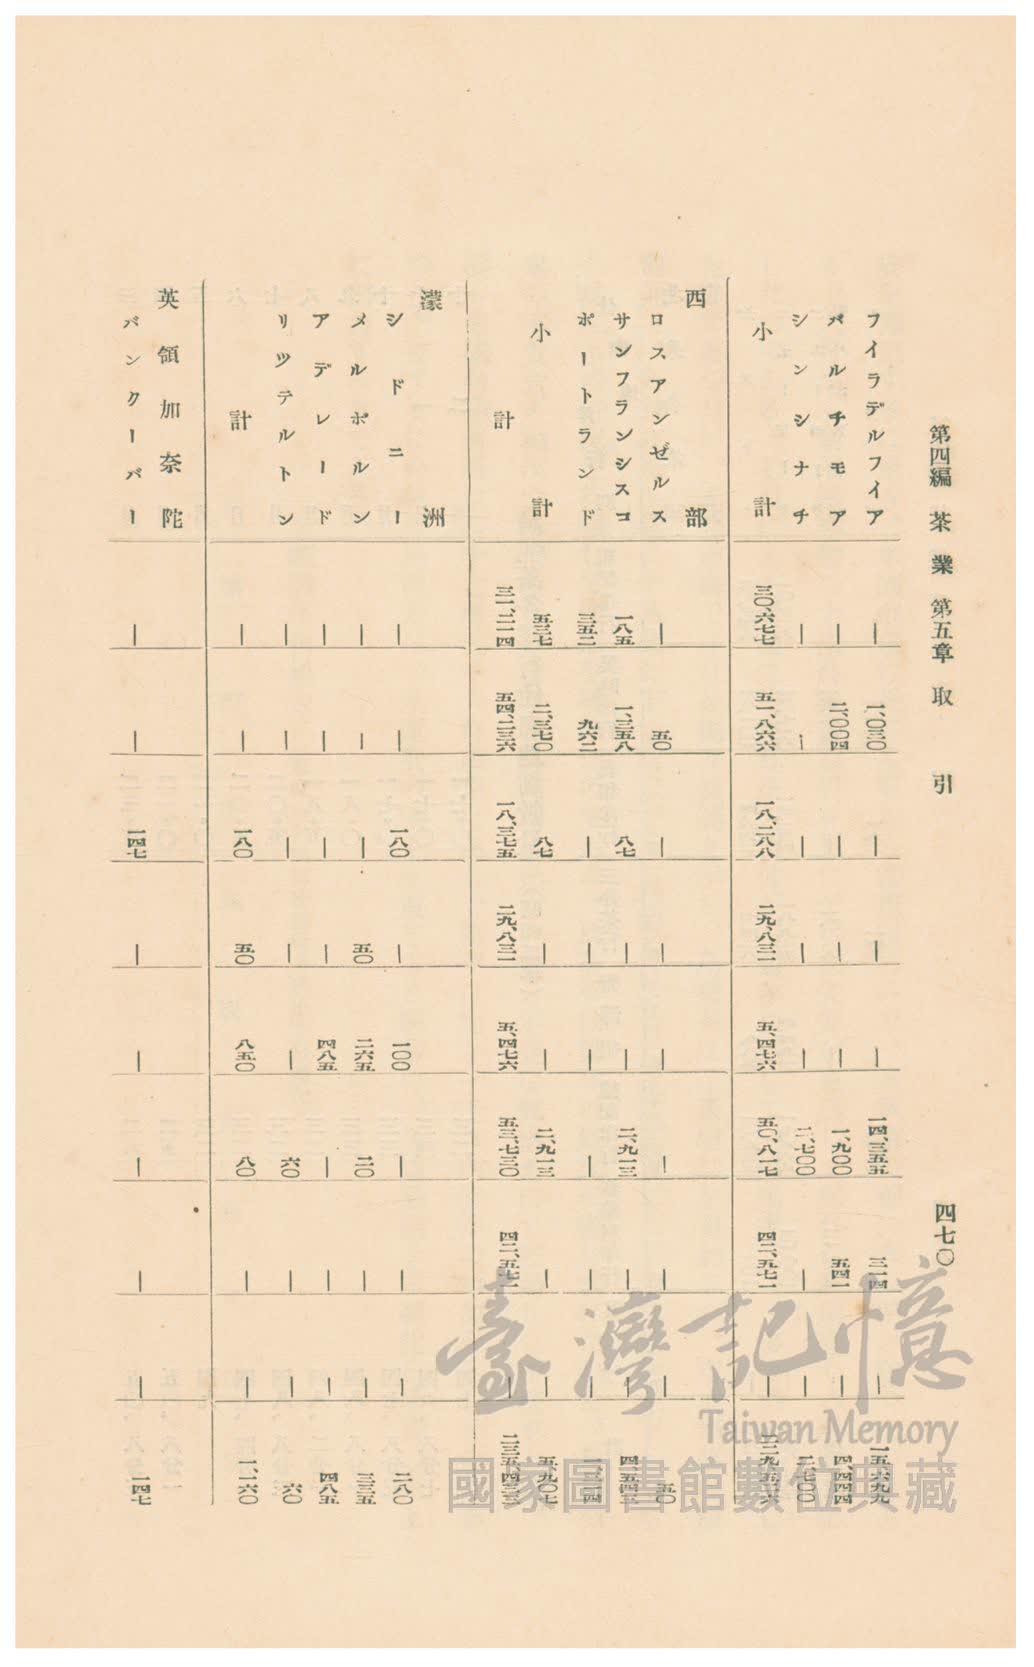 第四編 茶業 第五章 取引 四七〇
フイラデルフイア ― 一、〇三〇 ― ― ― 一四、三五五 三一四 ― 一五、六九九
バルチモア ― 二、〇〇四 ― ― ― 一、九〇〇 五四一 ― 四、四四四
シンシナチ ― ― ― ― ― 二、七〇〇 ― ― 二、七〇〇
小計 三〇、六七七 五一、八六六 一八、二八八 二九、八三二 五、四七六 五〇、八一七 四二、五七二 ―
西部
ロスアンゼルス ― 五〇 ― ― ― ― ― ― 五〇
サンフランシスコ 一八五 一、三五八 八七 ― ― 二、九一三 ― ― 四、五四三
ポートランド 三五二 九六二 ― ― ― ― ― ― 一、三一四
小計 五三七 二、三七〇 八七 ― ― 二、九一三 ― ― 五、九〇七
計 三一、二一四 五四、二三六 一八、三七五 二九、八三二 五、四七六 五三、七三〇 四二、五七二 ―
濠洲
シドニー ― ― 一八〇 ― 一〇〇 ― ― ― 二八〇
メルボルン ― ― ― 五〇 二六五 二〇 ― ― 三三五
アデレード ― ― ― ― 四八五 ― ― ― 四八五
リツテルトン ― ― ― ― ― 六〇 ― ― 六〇
計 ― ― 一八〇 五〇 八五〇 八〇 ― ― 一、一六〇
英領加奈陀
バンクーバー ― ― 一四七 ― ― ― ― ― 一四七
臺灣記憶
Taiwan Memory
國家圖書館數位典藏